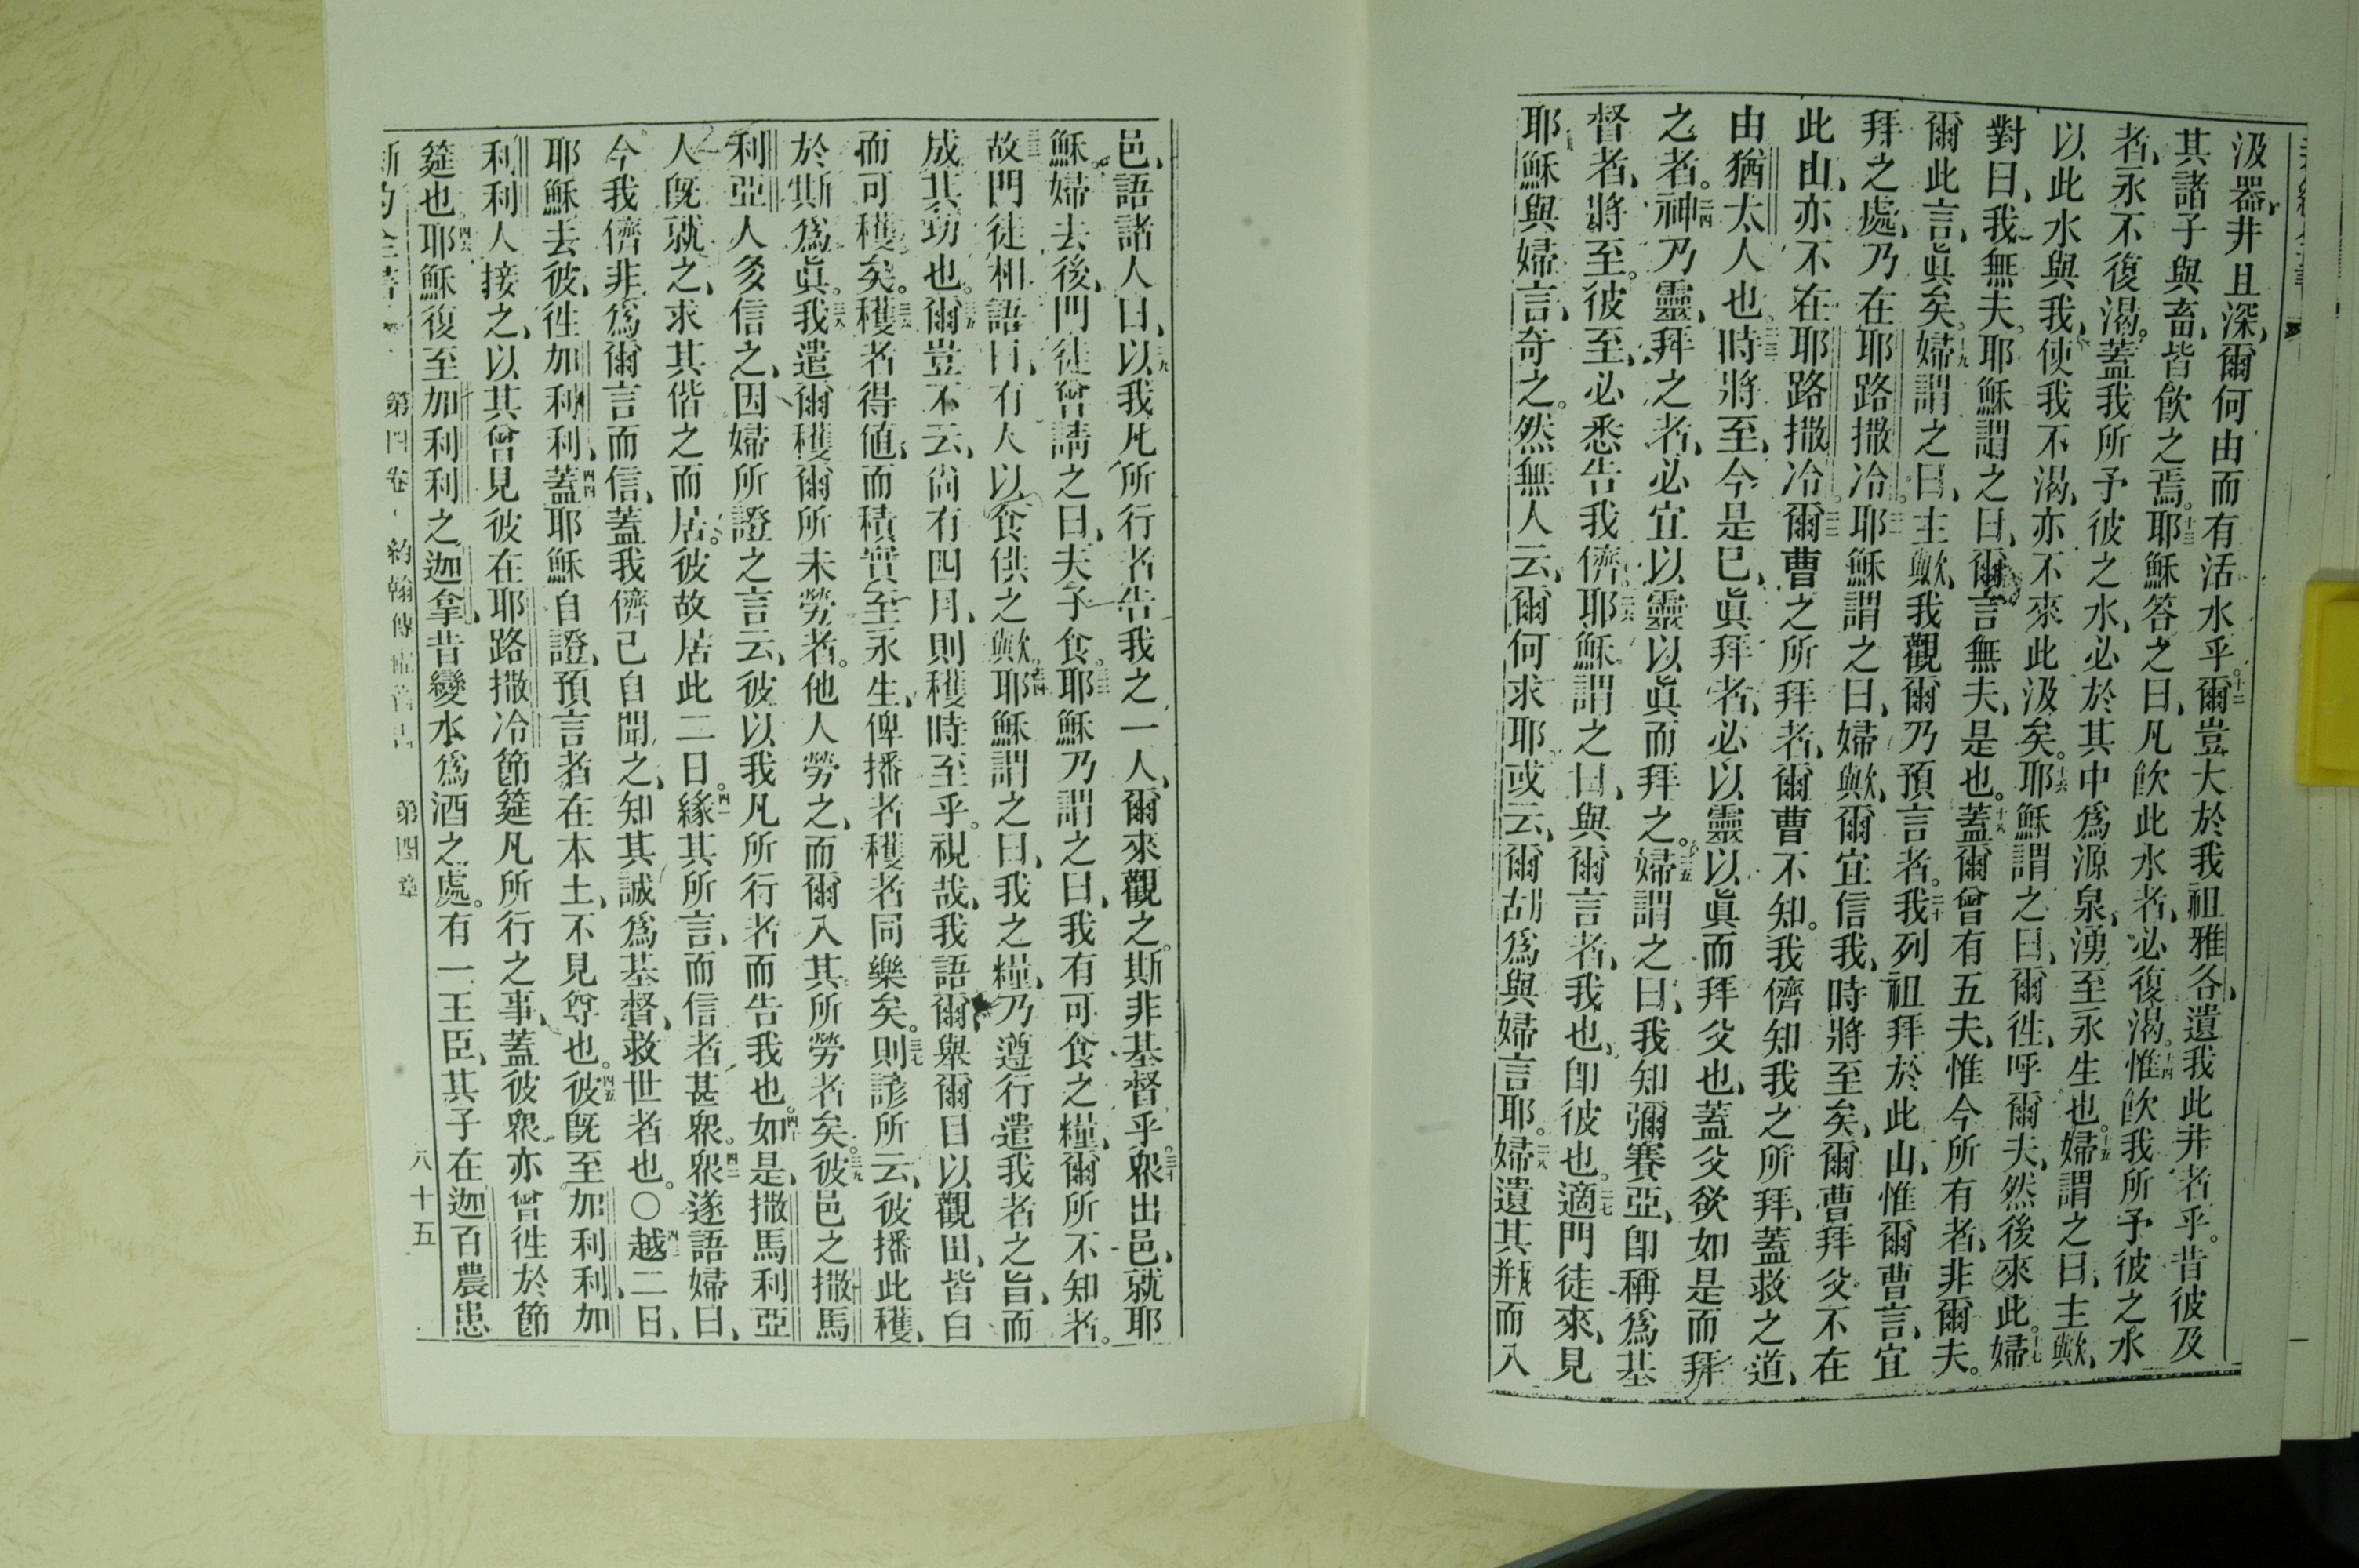 汲器、井且深、爾何由而有活水乎。十二爾豈大於我祖雅各、遺我此井者乎。昔彼及
其諸子與畜、皆飲之焉。十三耶穌答之曰、凡飲此水者、必復渴。十四惟飲我所予彼之水
者、永不復渴。蓋我所予彼之水、必於其中為源泉、湧至永生也。十五婦謂之曰、主歟、
以此水與我、使我不渴、亦不來此汲矣。十六耶穌謂之曰、爾徃、呼爾夫、然後來此。十七婦
對曰、我無夫。耶穌謂之曰、爾言無夫、是也。十八蓋爾曾有五夫、惟今所有者、非爾夫。
爾此言、眞矣。十九婦謂之曰、主歟、我觀爾乃預言者。二十我列祖拜於此山、惟爾曹言、宜
拜之處、乃在耶路撒冷。二一耶穌謂之曰、婦歟、爾宜信我、時將至矣、爾曹拜父、不在
此山、亦不在耶路撒冷。二二爾曹之所拜者、爾曹不知。我儕知我之所拜、蓋救之道、
由猶太人也。二三時將至、今是已、眞拜者、必以靈以眞而拜父也、蓋父欲如是而拜
之者。二四神乃靈、拜之者、必宜以靈以眞而拜之。二五婦謂之曰、我知彌賽亞、卽稱為基
督者、將至。彼至、必悉告我儕。二六耶穌謂之曰、與爾言者、我也、卽彼也。二七適門徒來、見
耶穌與婦言、奇之。然無人云、爾何求耶。或云、爾胡為與婦言耶。二八婦遺其瓶而入
邑、語諸人曰、二九以我凡所行者告我之一人、爾來觀之。斯非基督乎。三十衆出邑、就耶
穌。婦去後、門徒曾請之曰、夫子食。三二耶穌乃謂之曰、我有可食之糧、爾所不知者。
三三故門徒相語曰、有人以食供之歟。三四耶穌謂之曰、我之糧、乃遵行遣我者之旨、而
成其功也。三五爾豈不云、尚有四月、則穫時至乎。視哉、我語爾、舉爾目以觀田、皆白
而可穫矣。三六穫者得値、而積實至永生、俾播者穫者同樂矣。三七則諺所云、彼播此穫、
於斯為眞。三八我遣爾穫爾所未勞者。他人勞之、而爾入其所勞者矣。三九彼邑之撒馬
利亞人多信之、因婦所證之言云、彼以我凡所行者而告我也。四十如是、撒馬利亞
人旣就之、求其偕之而居。彼故居此二日。四一緣其所言、而信者甚衆。四二衆遂語婦曰、
今我儕非為爾言而信、蓋我儕已自聞之、知其誠為基督、救世者也。○四三越二日、
耶穌去彼、徃加利利、四四蓋耶穌自證、預言者在本土、不見尊也。四五彼旣至加利利、加
利利人接之、以其曾見彼在耶路撒冷節筵凡所行之事、蓋彼衆亦曾徃於節
筵也。四六耶穌復至加利利之迦拿、昔變水為酒之處。有一王臣、其子在迦百農患
新約全書 第四卷 約翰傳福音書 第四章 八十五